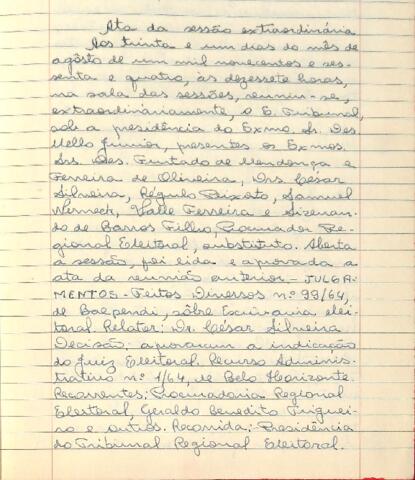 Ata da sessão extraordinária
Aos trinta e um dias do mês de
agôsto de um mil novecentos e ses-
senta e quatro, às dezessete horas,
na sala das sessões, reuniu-se,
extraordináriamente, o E. Tribunal,
sob a presidência do Exmo. Sr. Des.
Mello Junior, presentes os Exmos.
Srs. Des. Furtado de Mendonça e
Ferreira de Oliveira, Drs. César
Silveira, Régulo Peixoto, Samuel
Werneck, Valle Ferreira e Sizenan-
do de Barros Filho, Procurador Re-
gional Eleitoral, substituto. Aberta
a sessão, foi lida e aprovada a
ata da reunião anterior. - JULGA-
MENTOS - Feitos Diversos nº 99/64,
de Baependi, sôbre Escrivania elei-
toral. Relator: Dr. César Silveira
Decisão: aprovaram a indicação
do Juiz Eleitoral. Recurso Adminis-
trativo nº 1/64, de Belo Horizonte.
Recorrentes: Procuradoria Regional
Eleitoral, Geraldo Benedito Triguei-
ro e outros. Recorrida: Presidência
do Tribunal Regional Eleitoral.